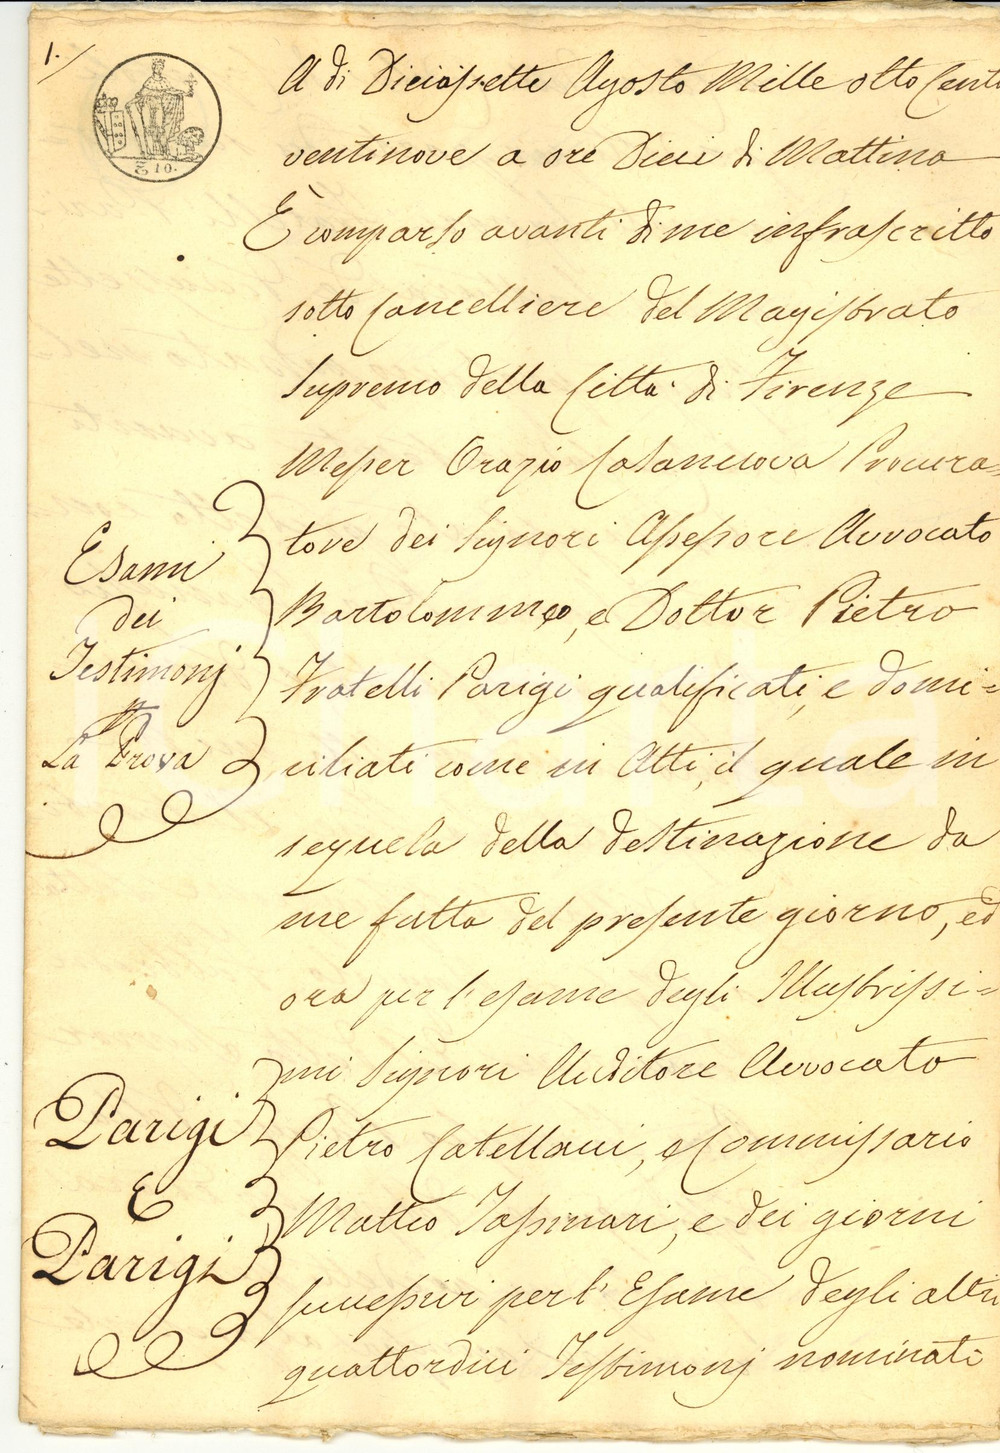 1.
A di Diciassette Agosto Mille otto Cento
ventinove a ore Dieci di Mattina
È comparso avanti di me infrascritto
sotto Cancelliere del Magistrato
Supremo della Città di Firenze
Messer Orazio Casanuova Procura=
tore dei Signori Assessore Avvocato
Bartolommeo, e Dottor Pietro
Fratelli Parigi qualificati, e domi=
ciliati come in Atti, il quale in
sequela della destinazione da
me fatta del presente giorno, ed
ora per l'esame degli Illustrissi=
mi Signori Auditore Avvocato
Pietro Catellani, e Commissario
Matteo Tassinari, e dei giorni
successivi per l'Esame degli altri
quattordici Testimonj nominati
Esami
dei
Testimonj
La Prova
Parigi
E
Parigi
10.